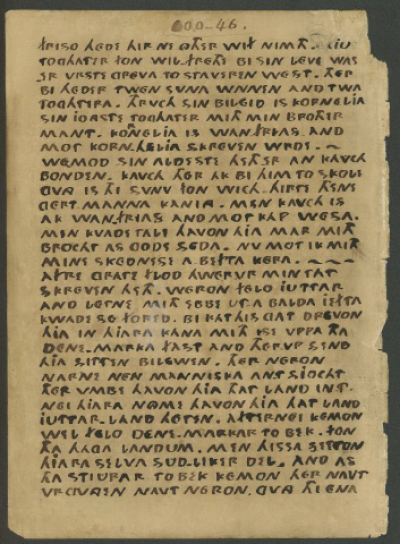 OO-46.
FRISO HEDE HIR NEI OTHER WIF NIMTH. THJU
TOGHATER FON WILFRETHE BI SIN LEVE WAS
ER VRSTE GREVA TO STAVEREN WEST. THER
BI HEDER TWEN SVNA WNNEN AND TWA
TOGHTERA. THRVCH SIN BILEID IS KORNELIA
SIN JONGSTE TOGHATER MITH MIN BROTHER
MANT. KORNELIA IS WAN FRYAS. AND
MOT KORN-HELIA SKREVEN WRDE. ~
WEMOD SIN ALDESTE HETH ER AN KAVCH
BONDEN. KAVCH THER AK BI HIM TO SKOLE
GVNG IS THI SVNV FON WICH-HIRTE THENE
GERT-MANNA KANING. MEN KAVCH IS
AK WAN FRYAS AND MOT KAP WESA.
MEN KVADE TALE HAVON HJA MAR MITH
BROCHT AS GODE SEDA. NV MOT IK MITH
MINE SKEDNESSE A BEFTA KERA. ~ ~ ~
AFTRE GRATE FLOD HWERVR MIN TAT
SKREVEN HETH. WERON FELO JUTTAR
AND LETNE MITH EBBE UTA BALDA JEFTA
KWADE SE FORED. BI KATHIS GAT DREVON
HJA IN HJARA KANA MITH YSE VPPA THA
DENE-MARKA FAST AND THERVP SEND
HJA SITTEN BILEWEN. THER NERON
NARNE NEN MANNISKA ANT SJOCHT
THER VMBE HAVON HJA THAT LAND INT.
NEI HJARA NOME HAVON HJA THAT LAND
JUTTAR-LAND HETEN. AFTERNEI KEMON
WEL FELO DENE-MARKAR TO BEK. FON
THA HAGA LANDUM. MEN THISSA SETTON
HJARA SELVA SUD-LIKER DEL. AND AS
THA STJURAR TO BEK KEMON THER NAVT
VRGVNGEN NAVT NERON. GVNG THI ENA